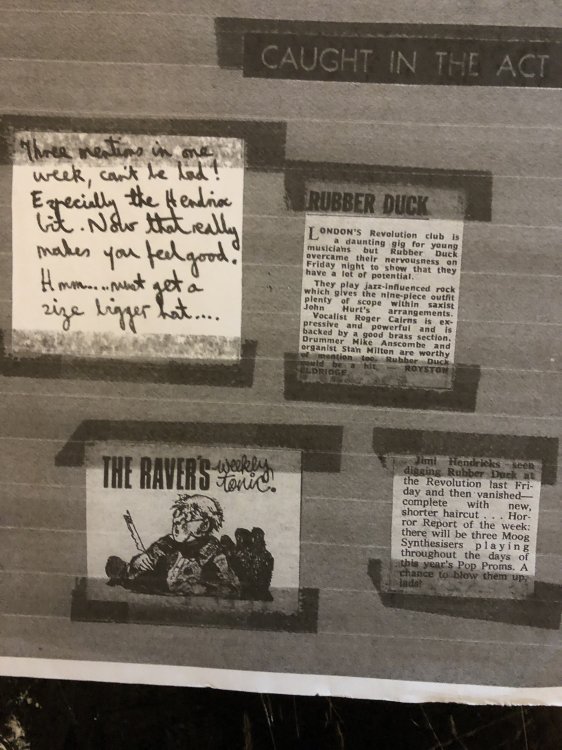 CAUGHT IN THE ACT
Three mentions in one
week, can't be bad!
Especially the Hendrix
bit. Now that really
makes you feel good.
Hmm....must get a
size bigger hat....
RUBBER DUCK
LONDON'S Revolution club is
a daunting gig for young
musicians but Rubber Duck
overcame their nervousness on
Friday night to show that they
have a lot of potential.
They play jazz-influenced rock
which gives the nine-piece outfit
plenty of scope within saxist
John Hurt's arrangements.
Vocalist Roger Cairns is ex-
pressive and powerful and is
backed by a good brass section.
Drummer Mike Anscombe and
organist Stan Milton are worthy
of mention too. Rubber Duck
could be a hit. — ROYSTON
ELDRIDGE
THE RAVER'S weekly
tonic.
Jimi Hendricks seen
digging Rubber Duck at
the Revolution last Fri-
day and then vanished—
complete with new,
shorter haircut . . . Hor-
ror Report of the week:
there will be three Moog
Synthesisers playing
throughout the days of
this year's Pop Proms. A
chance to blow them up,
lads!